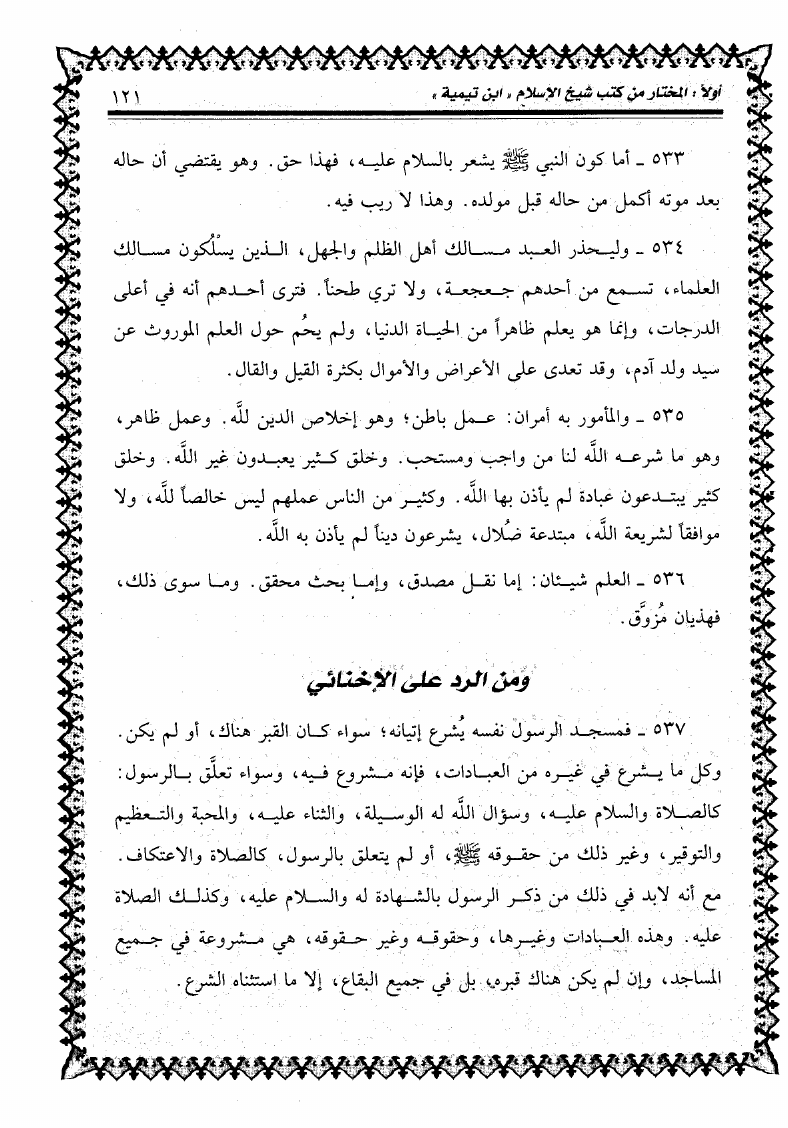 أولاً : المختار من كتب شيخ الإسلام « ابن تيمية »
١٢١
٥٣٣ ـ أما كون النبي ﷺ يشعر بالسلام عليه، فهذا حق. وهو يقتضي أن حاله
بعد موته أكمل من حاله قبل مولده. وهذا لا ريب فيه.
٥٣٤ ـ وليحذر العبد مسالك أهل الظلم والجهل، الذين يسلُكون مسالك
العلماء، تسمع من أحدهم جعجعة، ولا تري طحناً. فترى أحدهم أنه في أعلى
الدرجات، وإنما هو يعلم ظاهراً من الحياة الدنيا، ولم يحُم حول العلم الموروث عن
سيد ولد آدم، وقد تعدى على الأعراض والأموال بكثرة القيل والقال.
٥٣٥ ـ والمأمور به أمران: عمل باطن؛ وهو إخلاص الدين للَّه. وعمل ظاهر،
وهو ما شرعه اللَّه لنا من واجب ومستحب. وخلق كثير يعبدون غير اللَّه. وخلق
كثير يبتدعون عبادة لم يأذن بها اللَّه. وكثير من الناس عملهم ليس خالصاً للَّه، ولا
موافقاً لشريعة اللَّه، مبتدعة ضُلال، يشرعون ديناً لم يأذن به اللَّه.
٥٣٦ ـ العلم شيئان: إما نقل مصدق، وإما بحث محقق. وما سوى ذلك،
فهذيان مُزوَّق.
ومن الرد على الإخنائي
٥٣٧ ـ فمسجد الرسول نفسه يُشرع إتيانه؛ سواء كان القبر هناك، أو لم يكن.
وكل ما يشرع في غيره من العبادات، فإنه مشروع فيه، وسواء تعلَّق بالرسول:
كالصلاة والسلام عليه، وسؤال اللَّه له الوسيلة، والثناء عليه، والمحبة والتعظيم
والتوقير، وغير ذلك من حقوقه ﷺ، أو لم يتعلق بالرسول، كالصلاة والاعتكاف.
مع أنه لابد في ذلك من ذكر الرسول بالشهادة له والسلام عليه، وكذلك الصلاة
عليه. وهذه العبادات وغيرها، وحقوقه وغير حقوقه، هي مشروعة في جميع
المساجد، وإن لم يكن هناك قبره، بل في جميع البقاع، إلا ما استثناه الشرع.